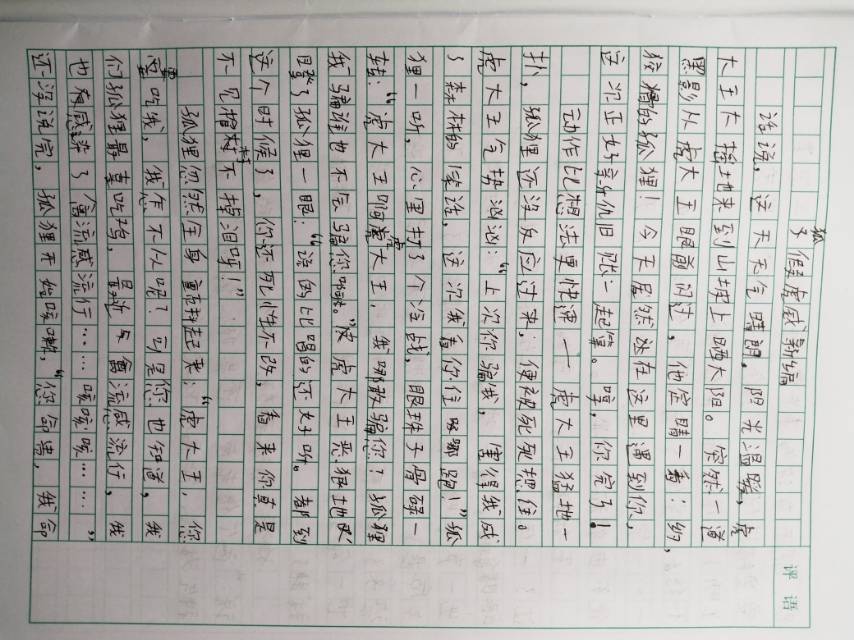 狐假虎威新编
话说，这天天气晴朗，阳光温暖，虎
大王大摇地来到山坡上晒太阳。突然一道
黑影从虎大王眼前闪过，他定睛一看：哟，
狡猾的狐狸！今天居然次在这里遇到你，
这次正好新仇旧账一起算。哼，你完了！
动作比想法更快速——虎大王猛地一
扑，狐狸还没反应过来，便被死死摁住。
虎大王气势汹汹：“上次你骗我，害得我成
了森林的笑话，这次我看你往哪跑！”狐
狸一听，心里打了个冷战，眼珠子骨碌一
转：“虎大王啊虎大王，我哪敢骗您？狐狸
我骗谁也不会骗您呀。”虎大王恶狠地
瞪了狐狸一眼：“说的比唱的还好听。都到
这个时候了，你还死性不改，看来你真是
不见棺材不掉泪呀！”
狐狸忽然全身颤抖起来：“虎大王，您
要吃我，我怎不从呢？可是您也知道，我
们狐狸最喜吃鸡，最近鸟禽流感流行，我
也有感染了禽流感流行……咳咳咳……”
还没说完，狐狸开始咳嗽。“您命贵，我命
评语